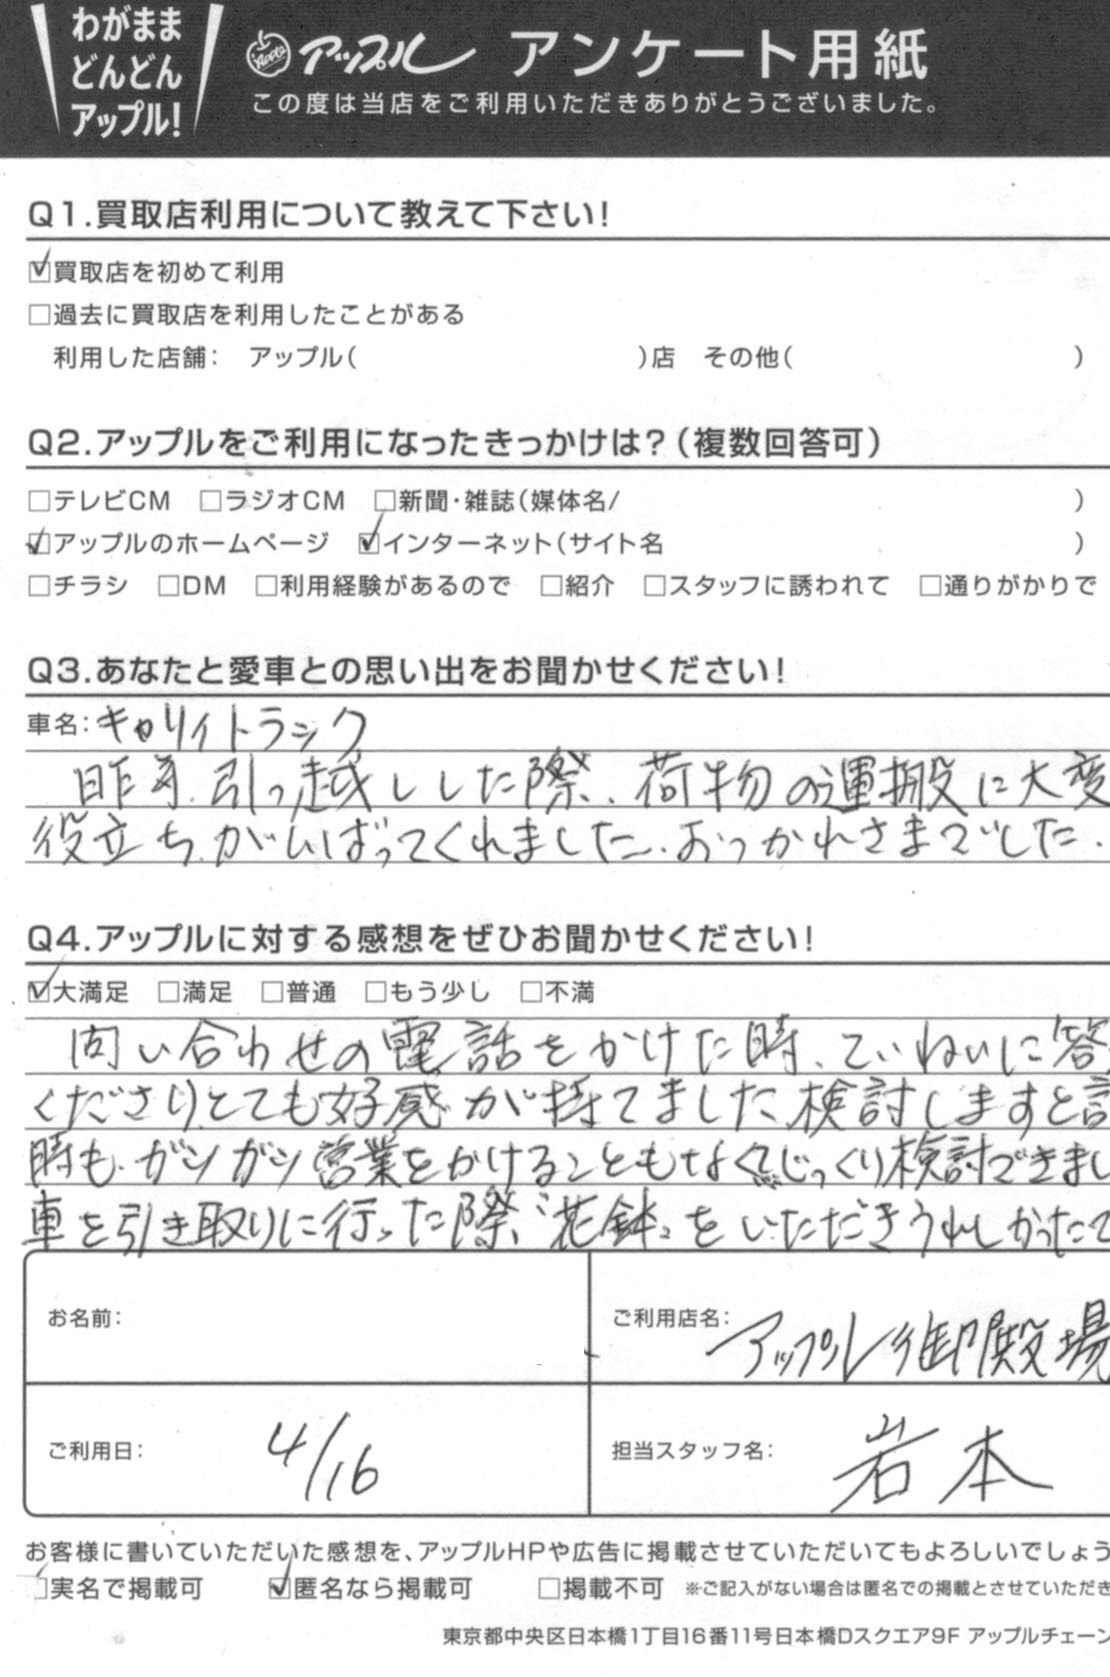 わがまま
どんどん
アップル!
アップル アンケート用紙
この度は当店をご利用いただきありがとうございました。
Q1.買取店利用について教えて下さい!
☑買取店を初めて利用
□過去に買取店を利用したことがある
利用した店舗: アップル( )店 その他( )
Q2.アップルをご利用になったきっかけは?(複数回答可)
□テレビCM □ラジオCM □新聞・雑誌(媒体名/ )
☑アップルのホームページ ☑インターネット(サイト名 )
□チラシ □DM □利用経験があるので □紹介 □スタッフに誘われて □通りがかりで
Q3.あなたと愛車との思い出をお聞かせください!
車名:キャリイトラック
昨年、引っ越しした際、荷物の運搬に大変
役立ち、がんばってくれました。おつかれさまでした。
Q4.アップルに対する感想をぜひお聞かせください!
☑大満足 □満足 □普通 □もう少し □不満
問い合わせの電話をかけた時、ていねいに答
くださりとても好感が持てました検討しますと言
時も、ガンガン営業をかけることもなくじっくり検討できまし
車を引き取りに行った際、"花鉢"をいただきうれしかったで
お名前:
ご利用店名: アップル御殿場
ご利用日: 4/16
担当スタッフ名: 岩本
お客様に書いていただいた感想を、アップルHPや広告に掲載させていただいてもよろしいでしょう
□実名で掲載可 ☑匿名なら掲載可 □掲載不可 ※ご記入がない場合は匿名での掲載とさせていただき
東京都中央区日本橋1丁目16番11号日本橋Dスクエア9F アップルチェーン